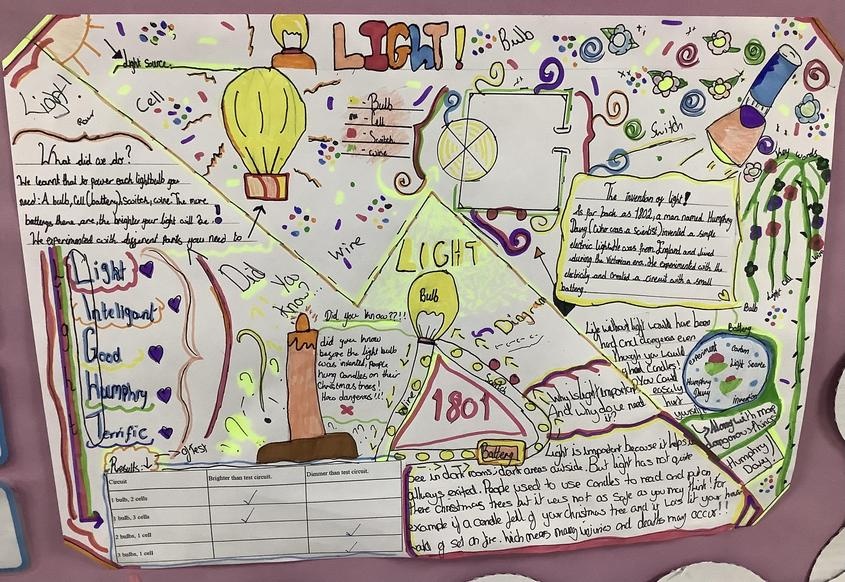 LIGHT!
Bulb
Light Source
Light!
Cell
Bulb
Cell
Switch
wire
Switch
What did we do?
We learnt that to power each lightbulb you
need: A bulb, Cell (battery), Switch, wire. The more
batterys there are, the brighter your light will be!
We experimented with different parts you need to
The invention of light!
As far back as 1802, a man named Humphry
Davy (who was a Scientist) invented a simple
electric light. He was from England and lived
during the Victorian era. He experimented with the
electricity and created a circuit with a small
battery.
Light
Inteligant
Good
humphry
Terrific
Did You Know?...
wire
LIGHT
Bulb
Diagram
1801
Battery
Did you know??!!
did you know
before the light bulb
was invented, People
hung candles on their
Christmas trees!
How dangerous!!!
Life without light would have been
hard and dangerous even
though you would
have Candles!
You could
easily
hurt
yourself
Bulb
Light
Cell
Battery
experiment
Carbon
Light Source
Humphry
Davy
invention
Along with more
dangerous things
Humphry
Davy!
Why is light important
And why do we need
it?
Light is important because it helps us
see in dark rooms, dark areas outside. But light has not quite
allways exited. People used to use candles to read and put on
there Christmas trees but it was not as safe as you may think! for
example if a candle fell of your Christmas tree and it was lit your house
could of set on fire. Which means many injuries and deaths may occur!!
Results:
of test
Circuit
Brighter than test circuit.
Dimmer than test circuit.
1 bulb, 2 cells
1 bulb, 3 cells
2 bulbs, 1 cell
3 bulbs, 1 cell